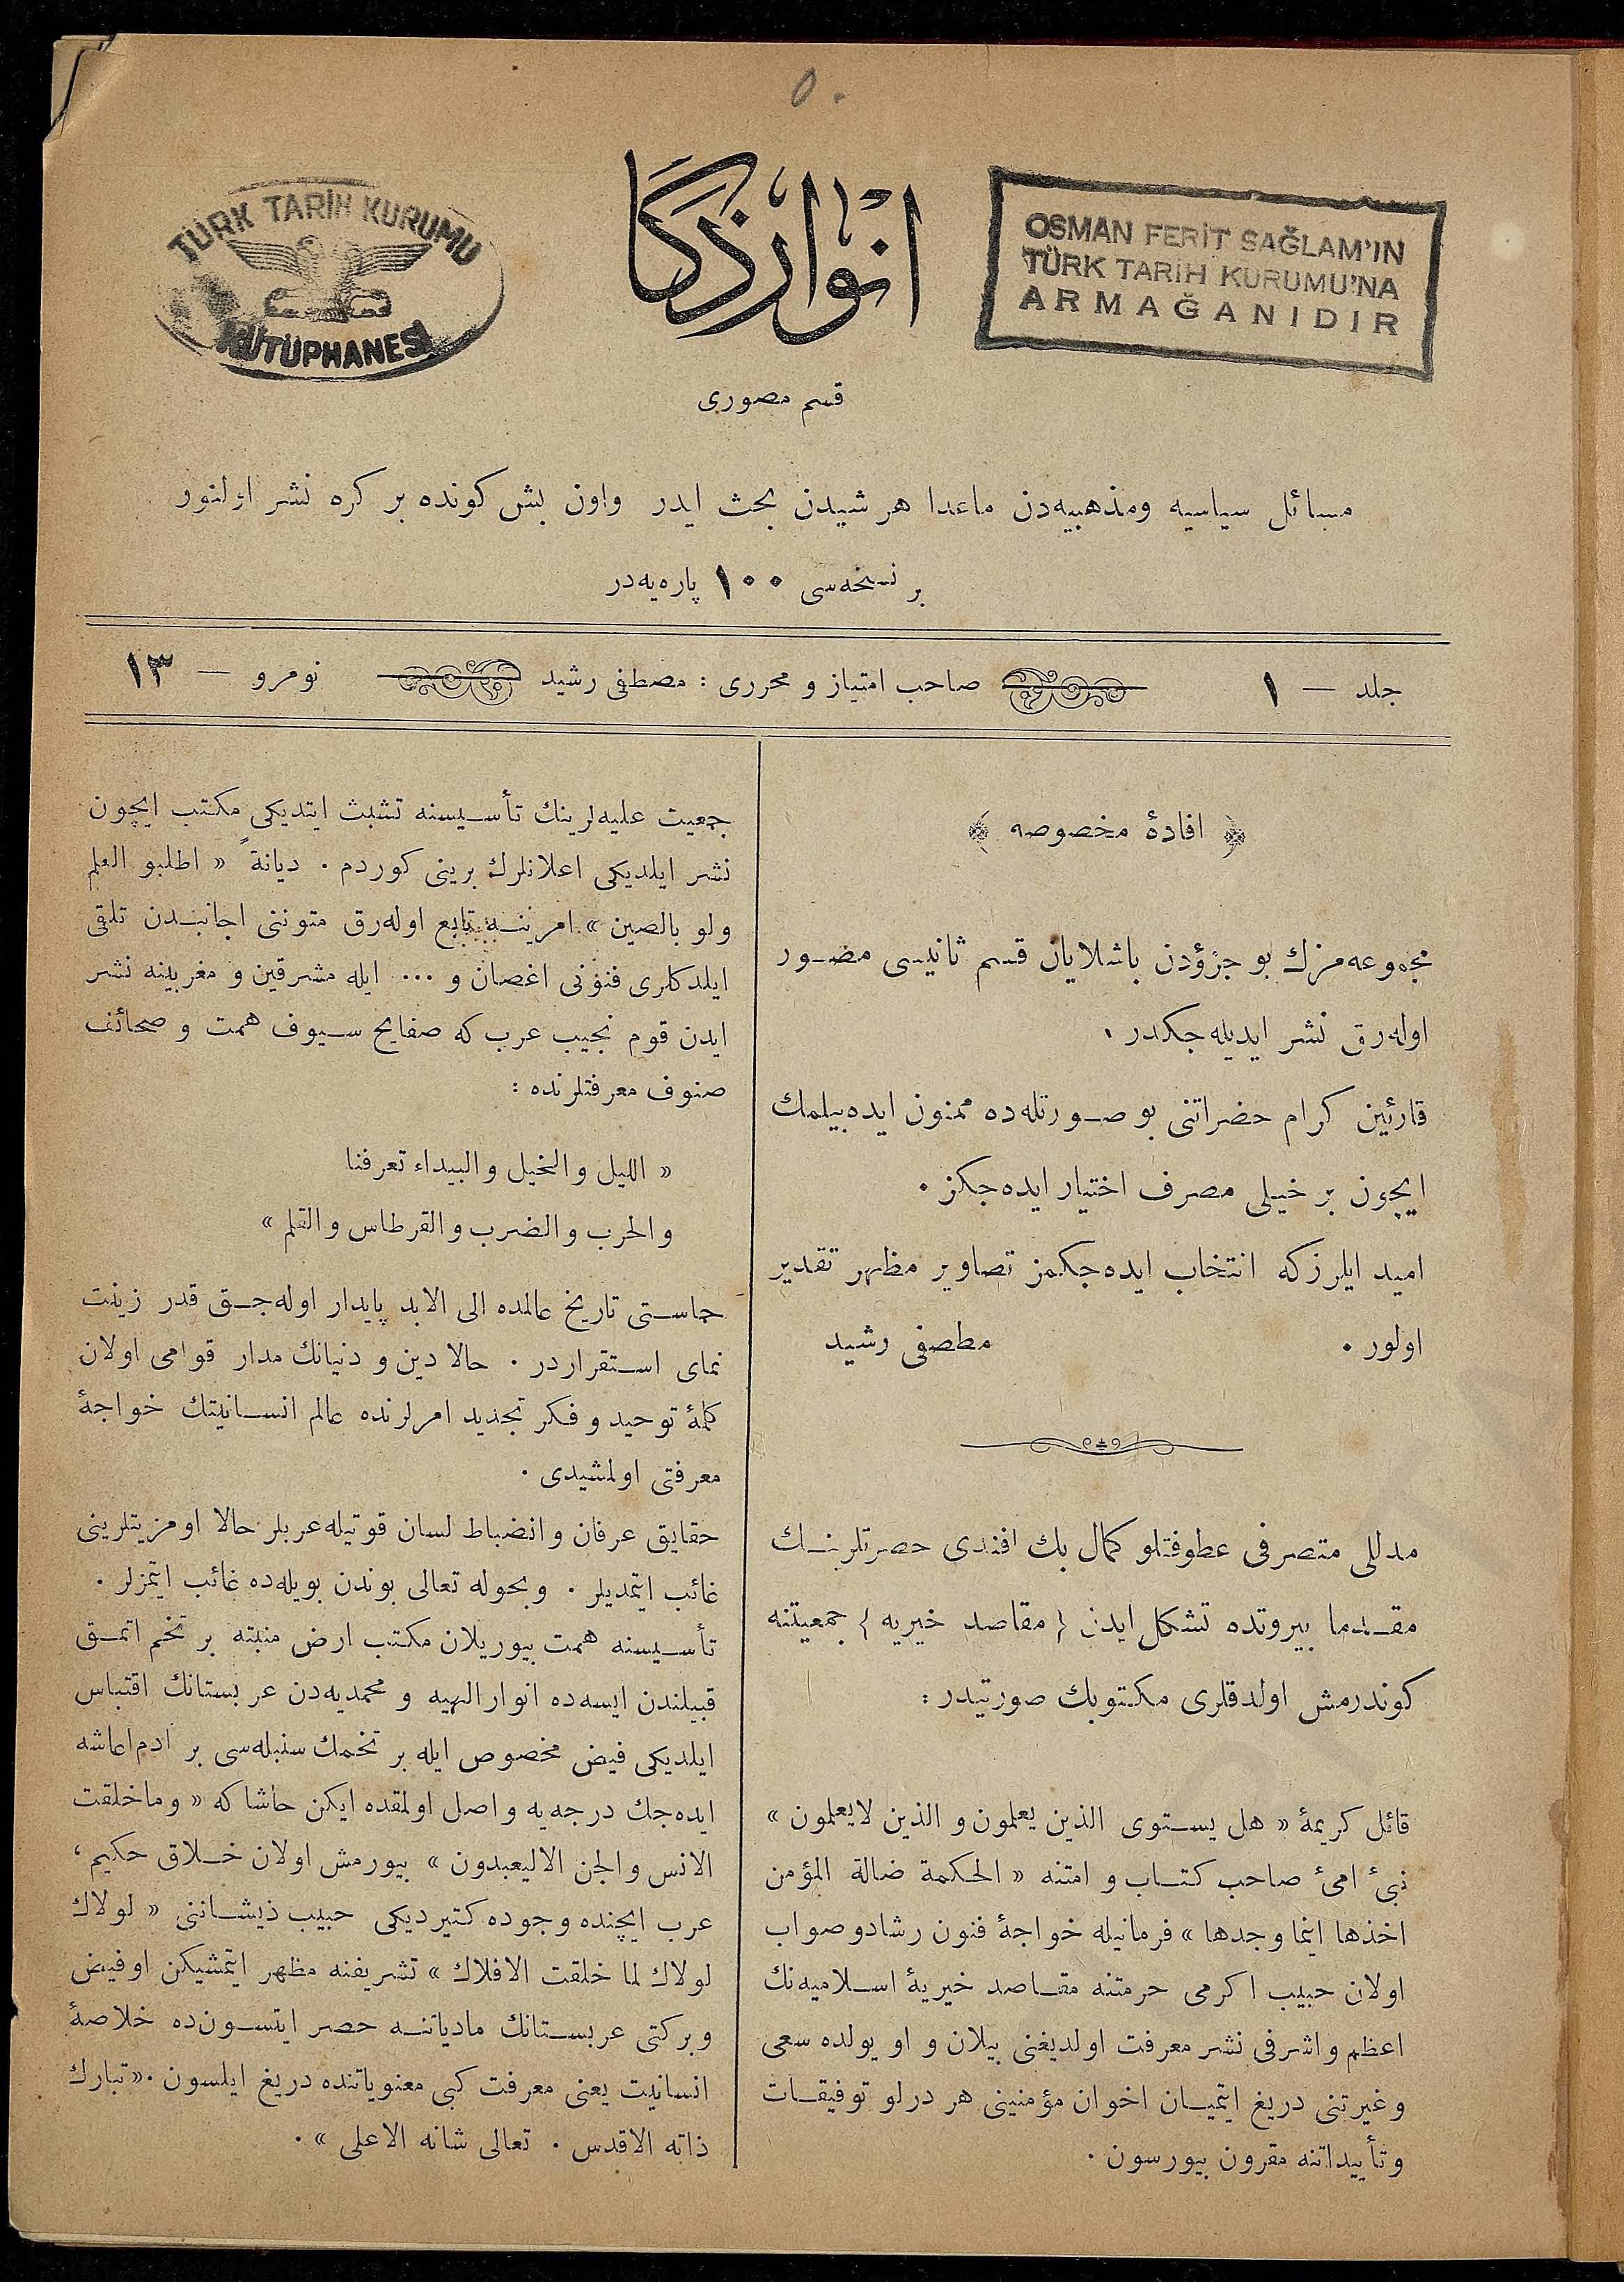 ٥٠
TÜRK TARİH KURUMU
KÜTÜPHANESİ
انوار ذكا
OSMAN FERİT SAĞLAM'IN
TÜRK TARİH KURUMU'NA
ARMAĞANIDIR
قسم مصوری
مسائل سیاسیه ومذهبیه‌دن ماعدا هر شیدن بحث ایدر واون بش كونده بر كره نشر اولنور
بر نسخه‌سی ١٠٠ پاره‌یه‌در
جلد — ١
صاحب امتیاز و محرری : مصطفی رشید
نومرو — ١٣
﴿ افادهٔ مخصوصه ﴾
مجموعه‌مزك بو جزؤدن باشلایان قسم ثانیسی مصور
اوله‌رق نشر ایدیله‌جكدر .
قارئین كرام حضراتنی بو صورتله‌ده ممنون ایده‌بیلمك
ایچون بر خیلی مصرف اختیار ایده‌جكز .
امید ایلرزكه انتخاب ایده‌جكمز تصاویر مظهر تقدیر
اولور . مطصفی رشید
مدللی متصرفی عطوفتلو كمال بك افندی حضرتلرینك
مقدما بیروتده تشكل ایدن { مقاصد خیریه } جمعیتنه
كوندرمش اولدقلری مكتوبك صورتیدر :
قائل كریمهٔ « هل یستوی الذین یعلمون و الذین لایعلمون »
نبیٔ امیٔ صاحب كتاب و امتنه « الحكمة ضالة المؤمن
اخذها اینما وجدها » فرمانیله خواجهٔ فنون رشادوصواب
اولان حبیب اكرمی حرمتنه مقاصد خیریهٔ اسلامیه‌نك
اعظم واشرفی نشر معرفت اولدیغنی بیلان و او یولده سعی
وغیرتنی دریغ ایتمیان اخوان مؤمنینی هر درلو توفیقات
وتأییداتنه مقرون بیورسون .
جمعیت علیه‌لرینك تأسیسنه تشبث ایتدیكی مكتب ایچون
نشر ایلدیكی اعلانلرك برینی كوردم . دیانةً « اطلبو العلم
ولو بالصین » امرینه تابع اوله‌رق متوننی اجانبدن تلقی
ایلدكلری فنونی اغصان و ... ایله مشرقین و مغربینه نشر
ایدن قوم نجیب عرب كه صفایح سیوف همت و صحائف
صنوف معرفتلرنده :
« اللیل والخیل والبیداء تعرفنا
والحرب والضرب والقرطاس والقلم »
حماستی تاریخ عالمده الی الابد پایدار اوله‌جق قدر زینت
نمای استقراردر . حالا دین و دنیانك مدار قوامی اولان
كلمهٔ توحید و فكر تجدید امرلرنده عالم انسانیتك خواجهٔ
معرفتی اولمشیدی .
حقایق عرفان وانضباط لسان قوتیله عربلر حالا اومزیتلرینی
غائب ایتمدیلر . وبحوله تعالی بوندن بویله‌ده غائب ایتمزلر .
تأسیسنه همت بیوریلان مكتب ارض منبته بر تخم اتمق
قبیلندن ایسه‌ده انوارالهیه و محمدیه‌دن عربستانك اقتباس
ایلدیكی فیض مخصوص ایله بر تخمك سنبله‌سی بر آدم‌اعاشه
ایده‌جك درجه‌یه واصل اولمقده ایكن حاشا كه « وماخلقت
الانس والجن الالیعبدون » بیورمش اولان خلاق حكیم ،
عرب ایچنده وجوده كتیردیكی حبیب ذیشاننی « لولاك
لولاك لما خلقت الافلاك » تشریفنه مظهر ایتمشیكن اوفیض
وبركتی عربستانك مادیاتنه حصر ایتسون‌ده خلاصهٔ
انسانیت یعنی معرفت كبی معنویاتنده دریغ ایلسون . « تبارك
ذاته الاقدس . تعالی شانه الاعلی » .